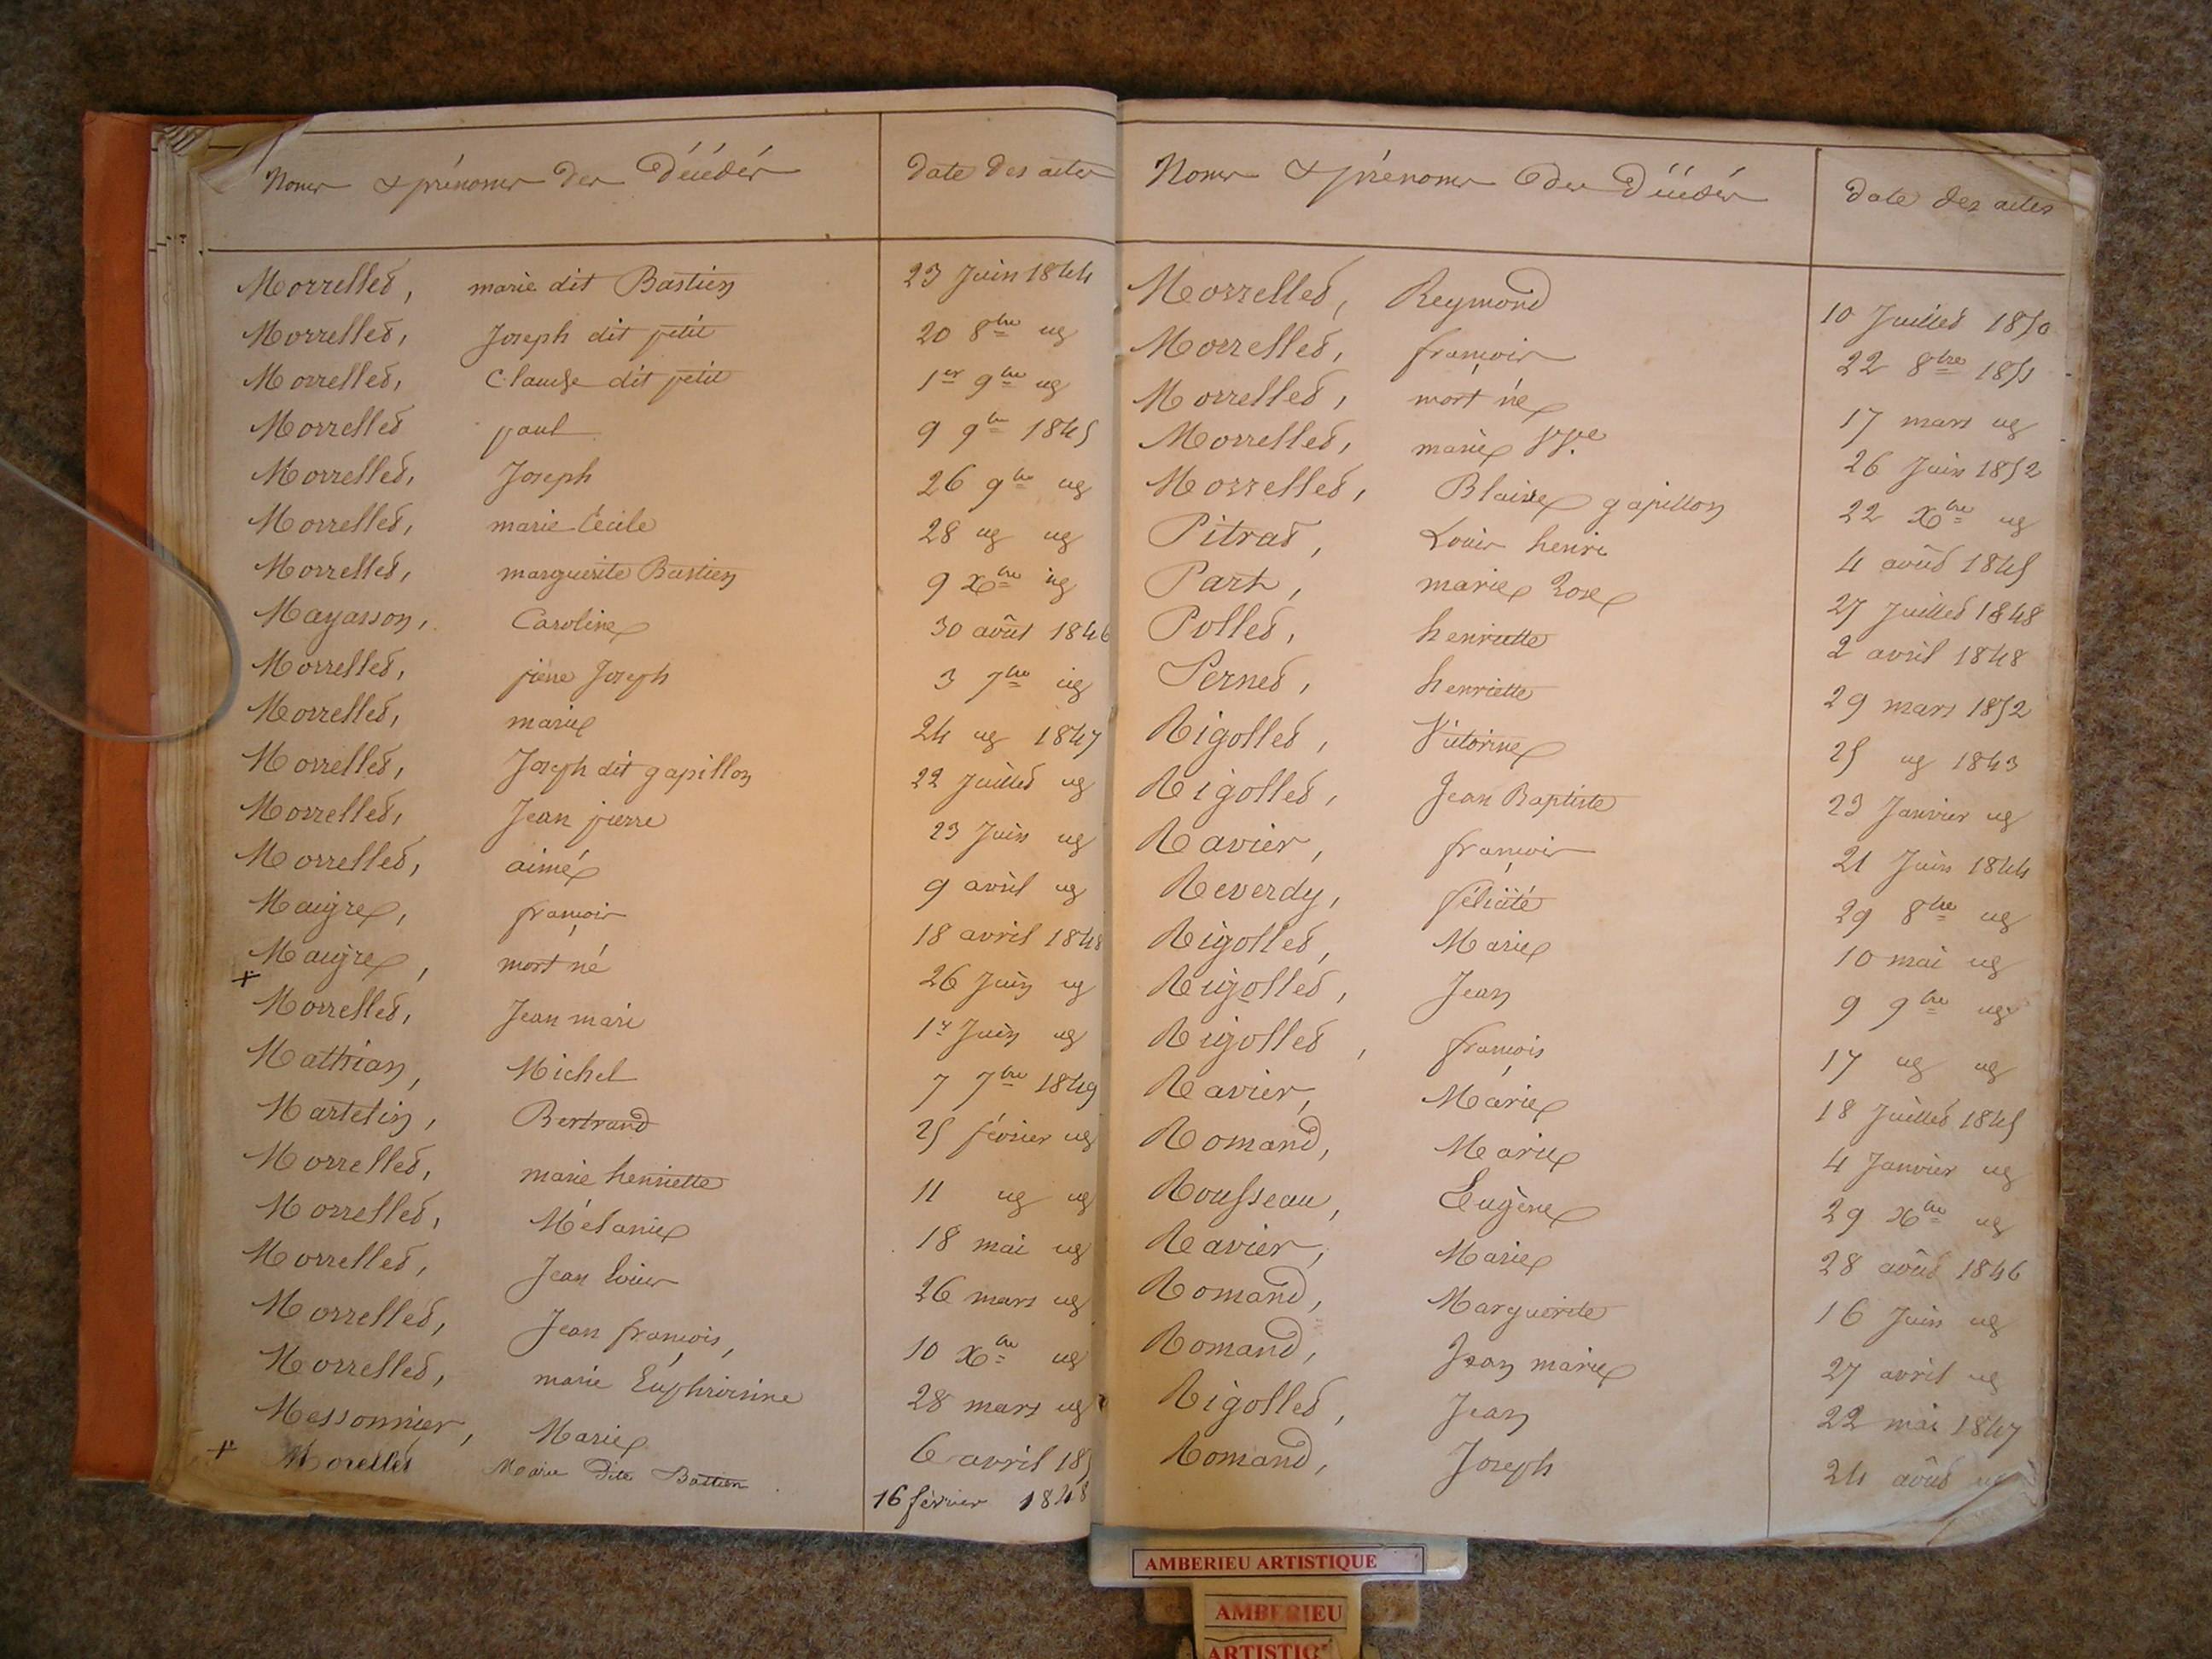 Noms & prénoms des Décédés Date des actes
Morrellet, marie dit Bastien 23 Juin 1844
Morrellet, Joseph dit petit 20 8bre ug
Morrellet, Claude dit petit 1er 9bre ug
Morrellet paul 9 9bre 1845
Morrellet, Joseph 26 9bre ug
Morrellet, marie Cécile 28 ug ug
Morrellet, marguerite Bastien 9 Xbre ug
Mayasson, Caroline 30 août 1846
Morrellet, piere Joseph 3 7bre ug
Morrellet, marie 24 ug 1847
Morrellet, Joseph dit gapillon 22 Juillet ug
Morrellet, Jean pierre 23 Juin ug
Morrellet, aimé 9 avril ug
Maigre, françois 18 avril 1848
Maigre, mort né 26 Juin ug
+ Morrellet, Jean mari 1er Juin ug
Mathian, Michel 7 7bre 1849
Martelin, Bertrand 25 février ug
Morrellet, marie henriette 11 ug ug
Morrellet, Mélanie 18 mai ug
Morrellet, Jean louis 26 mars ug
Morrellet, Jean françois, 10 Xbre ug
Morrellet, marie Euphroisine 28 mars ug
Messonnier, Marie 6 avril 185
+ Morellet Marie dite Bastien 16 février 1848
Noms & prénoms des Décédés Date des actes
Morrellet, Reymond 10 Juillet 1850
Morrellet, françois 22 8bre 1851
Morrellet, mort né 17 mars ug
Morrellet, marie 26 Juin 1852
Morrellet, Blaise gapillon 22 Xbre ug
Pitrat, Louis henri 4 août 1845
Part, marie Rose 27 Juillet 1848
Pollet, henriette 2 avril 1848
Pernet, henriette 29 mars 1852
Rigollet, Victorine 25 ug 1843
Rigollet, Jean Baptiste 23 Janvier ug
Ravier, françois 21 Juin 1844
Reverdy, félicité 29 8bre ug
Rigollet, Marie 10 mai ug
Rigollet, Jean 9 9bre ug
Rigollet, françois 17 ug ug
Ravier, Marie 18 Juillet 1845
Romand, Marie 4 Janvier ug
Rousseau, Eugène 29 Xbre ug
Ravier, Marie 28 août 1846
Romand, Marguerite 16 Juin ug
Romand, Jean marie 27 avril ug
Rigollet, Jean 22 mai 1847
Romand, Joseph 24 août ug
AMBERIEU ARTISTIQUE
AMBERIEU
ARTISTIQ